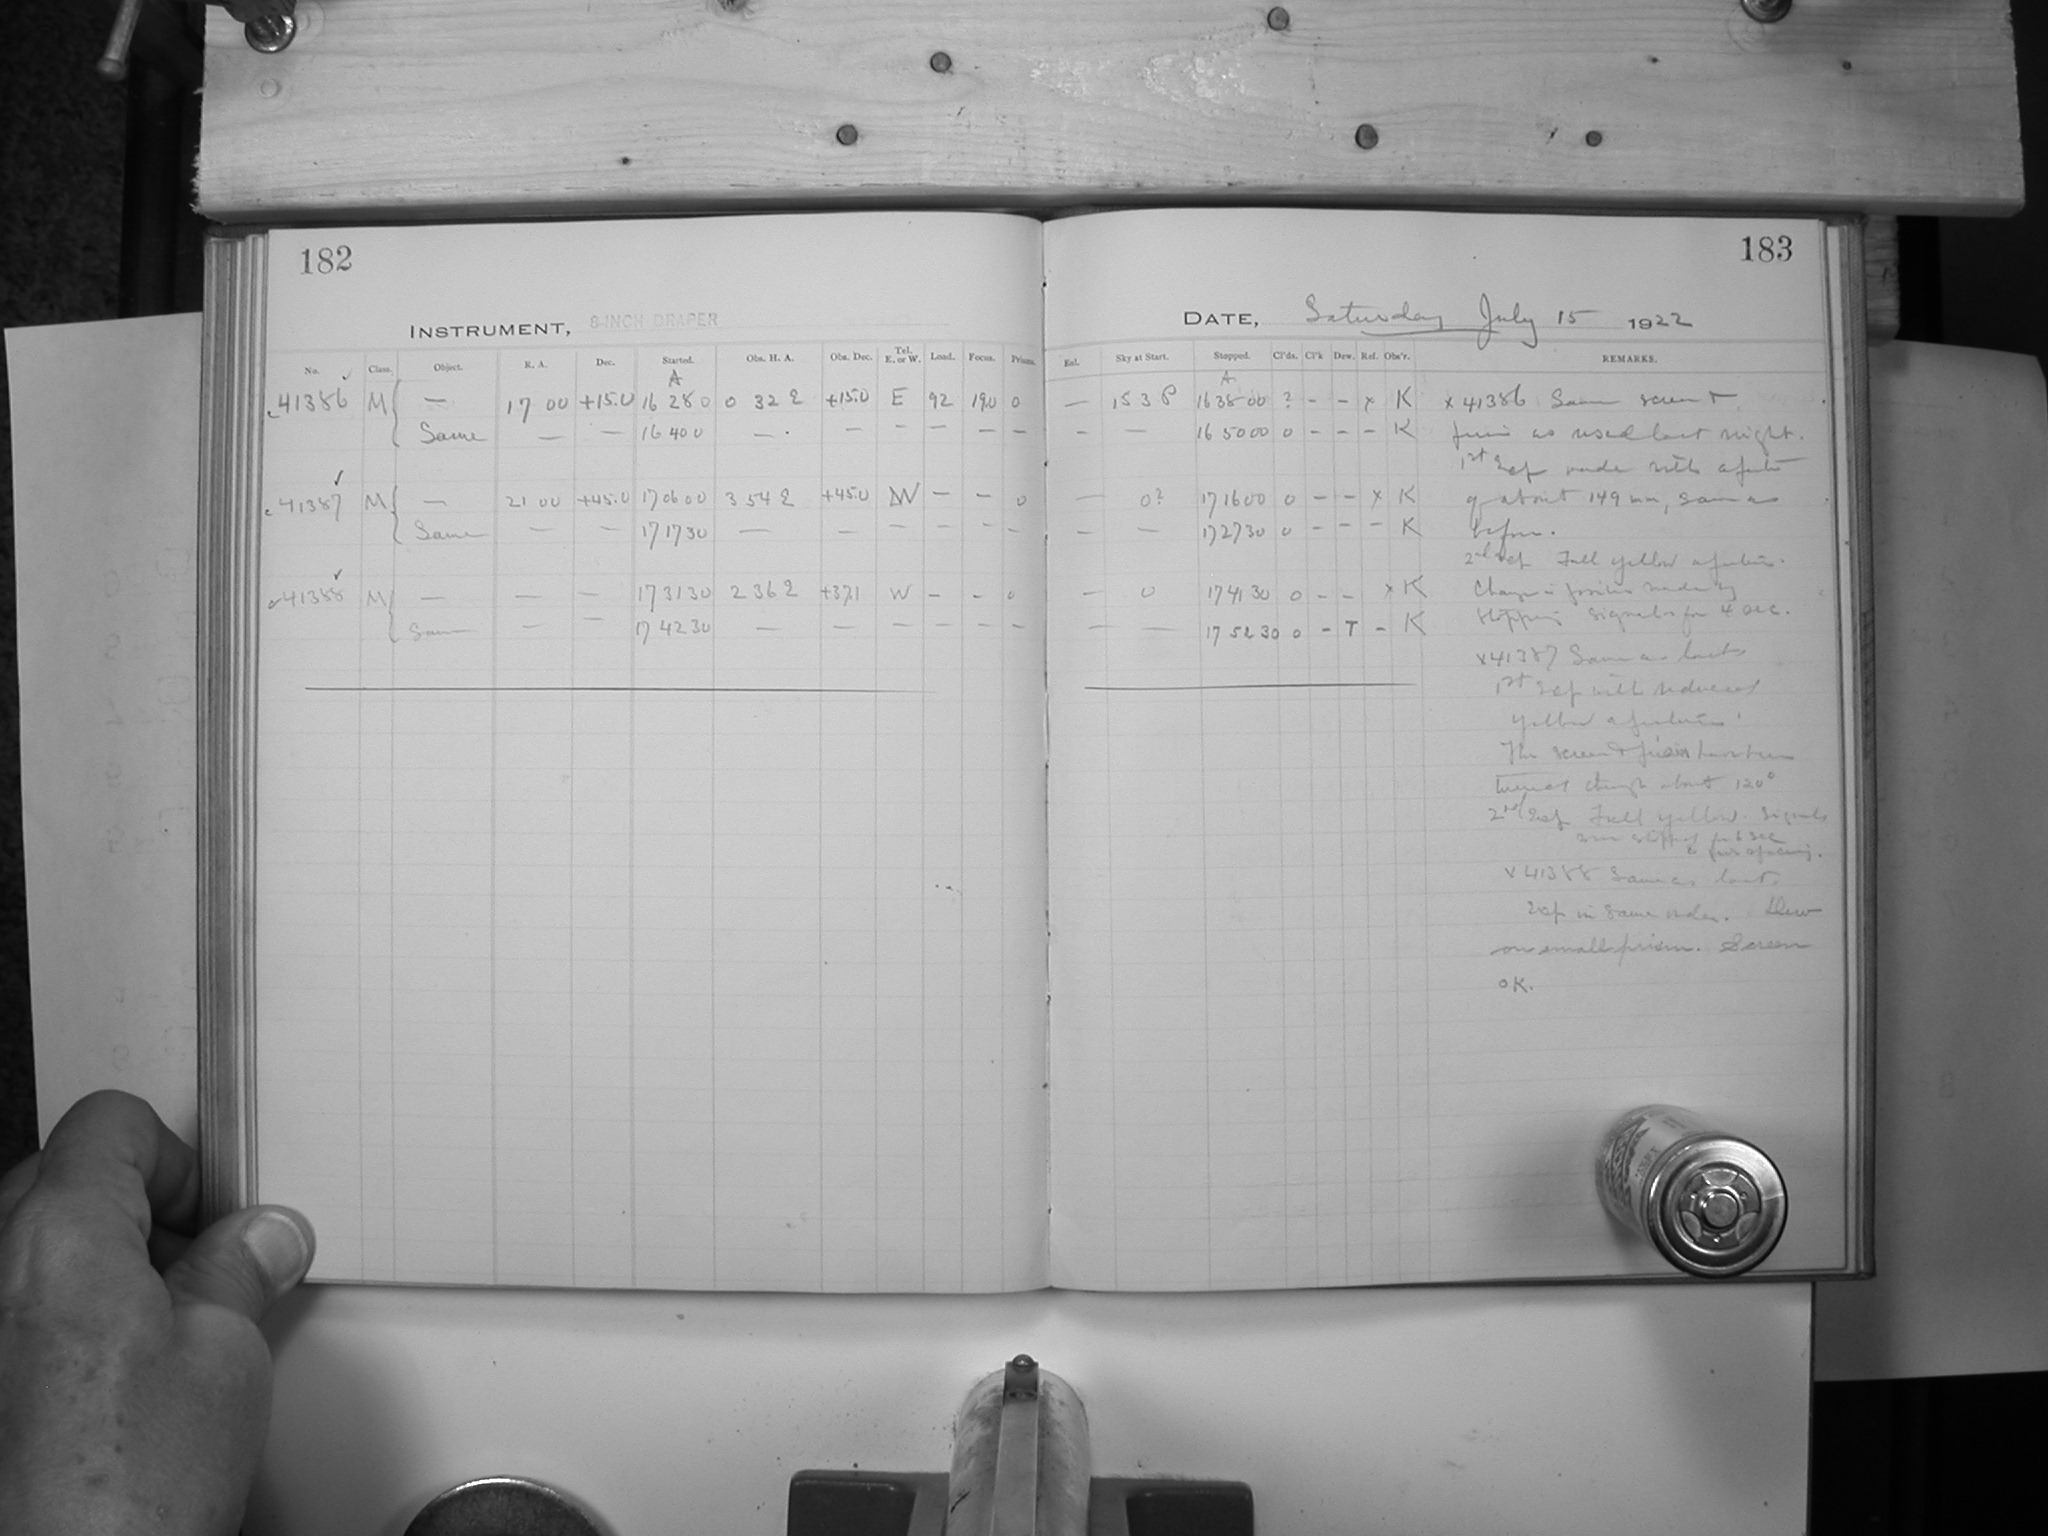 182
INSTRUMENT, 8-INCH DRAPER
No. Class. Object. R. A. Dec. Started. Obs. H. A. Obs. Dec. Tel. E. or W. Load. Focus. Prisms.
A
41386 M — 17 00 +15.0 16 28 0 0 32 E +15.0 E 92 19.0 0
Same — — 16 40 0 — — — — — —
41387 M — 21 00 +45.0 17 06 00 3 54 E +45.0 W — — 0
Same — — 17 17 30 — — — — — —
41388 M — — — 17 31 30 2 36 E +37.1 W — — 0
Same — — 17 42 30 — — — — — —
183
DATE, Saturday July 15 1922
Exl. Sky at Start. Stopped. Cl'ds. Cl'k Dew. Ref. Obs'r. REMARKS.
A
— 15 3 P 16 38 00 ? - - x K x 41386 Same screen +
— — 16 50 00 0 - - - K prism as used last night.
1st Exp made with aperture
— 0? 17 16 00 0 - - x K of about 149 mm, same as
— — 17 27 30 0 - - - K before.
2nd Exp Full yellow aperture.
— 0 17 41 30 0 - - x K Change in position made by
— — 17 52 30 0 - T - K stopping signals for 4 sec.
x 41387 Same as last
1st Exp with reduced
yellow aperture
The screen + prism have been
turned through about 120°
2nd Exp Full yellow. Signals
stopped for 6 sec
spacing.
x 41388 Same as last.
Exp in same order. Dew
on small prism. Screen
OK.